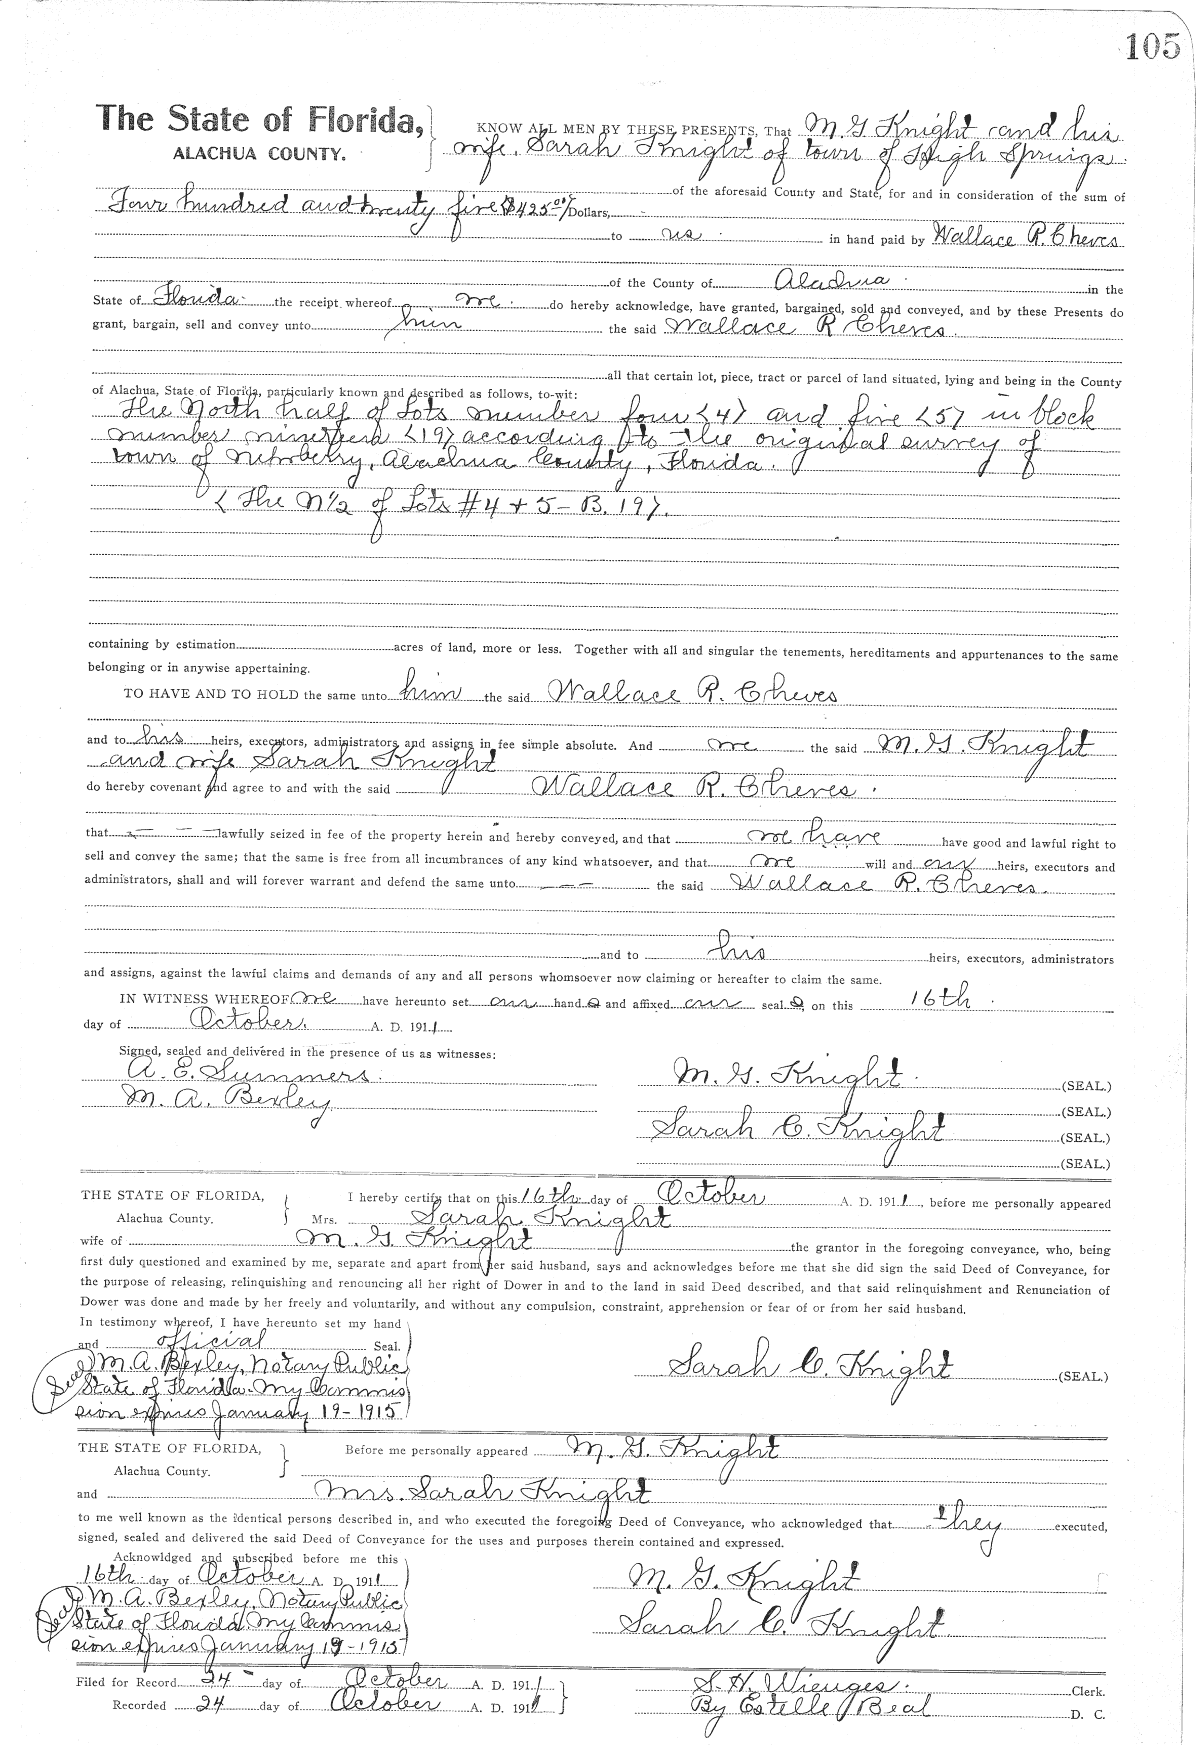 105
The State of Florida, KNOW ALL MEN BY THESE PRESENTS, That M. G Knight and his
ALACHUA COUNTY. wife, Sarah Knight of town of High Springs.
of the aforesaid County and State, for and in consideration of the sum of
Four hundred and twenty five $425 00/ Dollars,
to us in hand paid by Wallace R. Cheves
of the County of Alachua in the
State of Florida the receipt whereof we do hereby acknowledge, have granted, bargained, sold and conveyed, and by these Presents do
grant, bargain, sell and convey unto him the said Wallace R Cheves.
all that certain lot, piece, tract or parcel of land situated, lying and being in the County
of Alachua, State of Florida, particularly known and described as follows, to-wit:
The North half of Lots number four <4> and five <5> in block
number nineteen <19> according to the original survey of
town of Newberry, Alachua County, Florida.
< The N 1/2 of Lots #4 + 5 - B. 19>.
containing by estimation acres of land, more or less. Together with all and singular the tenements, hereditaments and appurtenances to the same
belonging or in anywise appertaining.
TO HAVE AND TO HOLD the same unto him the said Wallace R. Cheves
and to his heirs, executors, administrators and assigns in fee simple absolute. And we the said M. G. Knight
and wife Sarah Knight
do hereby covenant and agree to and with the said Wallace R. Cheves.
that — — — lawfully seized in fee of the property herein and hereby conveyed, and that we have have good and lawful right to
sell and convey the same; that the same is free from all incumbrances of any kind whatsoever, and that we will and our heirs, executors and
administrators, shall and will forever warrant and defend the same unto — — — the said Wallace R. Cheves.
and to his heirs, executors, administrators
and assigns, against the lawful claims and demands of any and all persons whomsoever now claiming or hereafter to claim the same.
IN WITNESS WHEREOF we have hereunto set our hand s and affixed our seal s, on this 16th
day of October. A. D. 1911
Signed, sealed and delivered in the presence of us as witnesses:
A. E. Summers. M. G. Knight. (SEAL.)
M. A. Bexley (SEAL.)
Sarah C. Knight (SEAL.)
(SEAL.)
THE STATE OF FLORIDA, I hereby certify that on this 16th day of October A. D. 1911, before me personally appeared
Alachua County. Mrs. Sarah Knight
wife of M. G. Knight the grantor in the foregoing conveyance, who, being
first duly questioned and examined by me, separate and apart from her said husband, says and acknowledges before me that she did sign the said Deed of Conveyance, for
the purpose of releasing, relinquishing and renouncing all her right of Dower in and to the land in said Deed described, and that said relinquishment and Renunciation of
Dower was done and made by her freely and voluntarily, and without any compulsion, constraint, apprehension or fear of or from her said husband.
In testimony whereof, I have hereunto set my hand
and official Seal.
Seal M. A. Bexley, Notary Public Sarah C. Knight (SEAL.)
State of Florida. My Commis
sion expires January 19-1915
THE STATE OF FLORIDA, Before me personally appeared M. G. Knight
Alachua County.
and Mrs. Sarah Knight
to me well known as the identical persons described in, and who executed the foregoing Deed of Conveyance, who acknowledged that they executed,
signed, sealed and delivered the said Deed of Conveyance for the uses and purposes therein contained and expressed.
Acknowldged and subscribed before me this
16th day of October A. D. 1911 M. G. Knight
Seal M. A. Bexley, Notary Public
State of Florida. My Commis Sarah C. Knight
sion expires January 19-1915
Filed for Record 24 day of October A. D. 1911 S. H. Wienges. Clerk.
Recorded 24 day of October A. D. 1911 By Estelle Beal D. C.